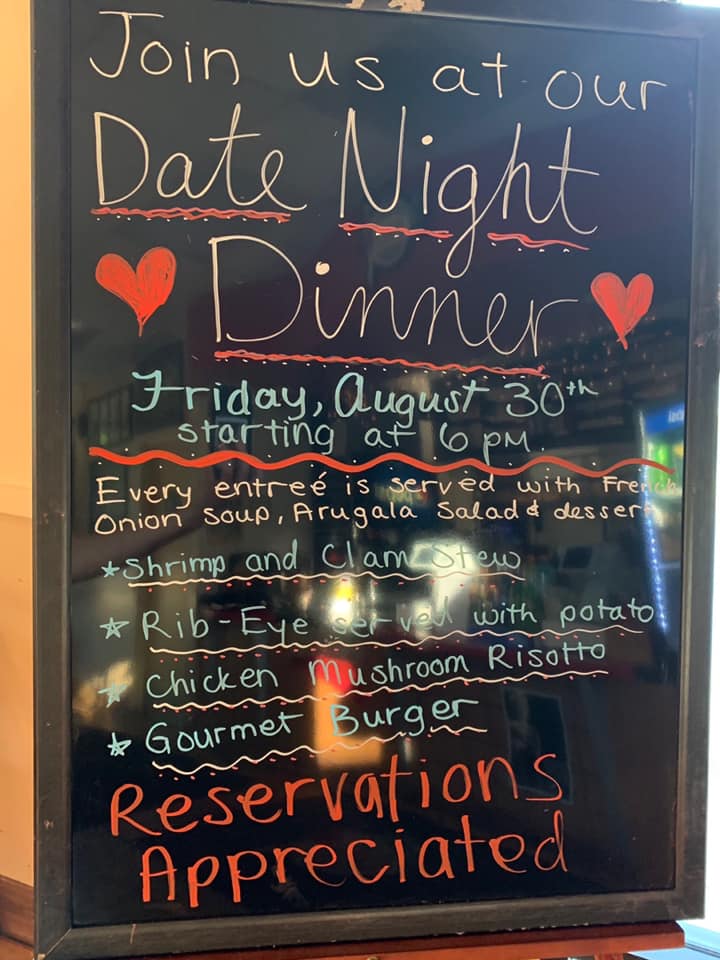 Join us at our
Date Night
Dinner
Friday, August 30th
starting at 6 pm.
Every entreé is served with French
Onion Soup, Arugala Salad & dessert
*Shrimp and Clam Stew
☆ Rib-Eye served with potato
☆ Chicken Mushroom Risotto
☆ Gourmet Burger
Reservations
Appreciated